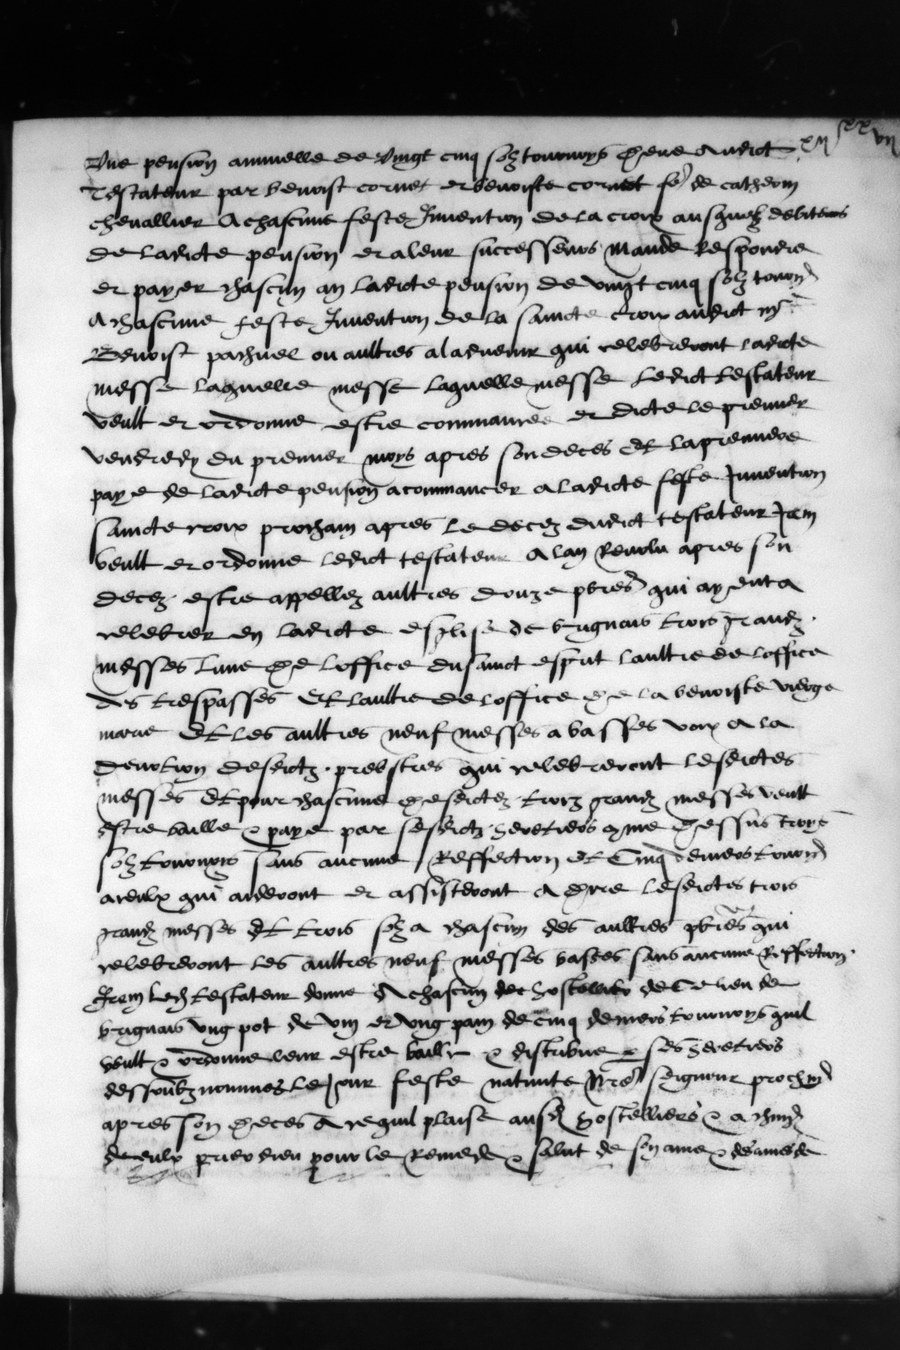 Une pension annuelle de vingt cinq solz tournoys deue audict
Testateur par benoist cornet et benoiste cornet fe de catherin
chevallier A chascune feste Invention de la croix ausquelz debiteurs
de ladicte pension et a leur successeurs mande Respondre
et payer chascun an ladicte pension de vingt cinq solz tourn
A chascune feste Invention de la saincte croix audict
Benoist ou aultres a ladvenir qui celebreront ladicte
messe laquelle messe laquelle messe Ledict testateur
veult et ordonne estre commancee et dicte le premier
vendredy du premier moys apres son deces Et la premiere
paye de ladicte pension a commancer a ladicte feste Invention
saincte croix prochain apres le decez dudict testateur Item
veult et ordonne ledict testateur A lan Revolu apres son
decez estre appellez aultres douze pbres qui ayent a
celebrer en ladicte esglise de brignais trois grandz
messes Lune de Loffice du sainct esprit Laultre de Loffice
des trespasses Et Laultre de Loffice de la benoiste vierge
marie Et Les aultres neuf messes a basses voix a la
devotion desdictz prebstres qui celebreront lesdictes
messes Et pour chascune desdictez troiz grandz messes veult
estre baille & paye par sesdictz heretiers cme dessus troys
solz tournoys sans aucune Reffection Et Cinq deniers tourn
a ceulx qui aideront et assisteront A dire lesdictes trois
grandz messes Et trois solz a chascun des aultres pbres qui
celebreront les aultres neuf messes basses sans aucune Reffection
Item Led testateur donne A chascun des hostelliers de Ce lieu de
brignais ung pot de vin et ung pain de cinq deniers tournoys quil
veult & ordonne leur estre baille & distribue ses heretiers
dessoubz nommes Le Jour feste nativite Nre seigneur prochain
apres son deces A ce quil plaise ausd hostelliers & a chun
deulx prier dieu pour le Remede & salut de son ame & des ames de